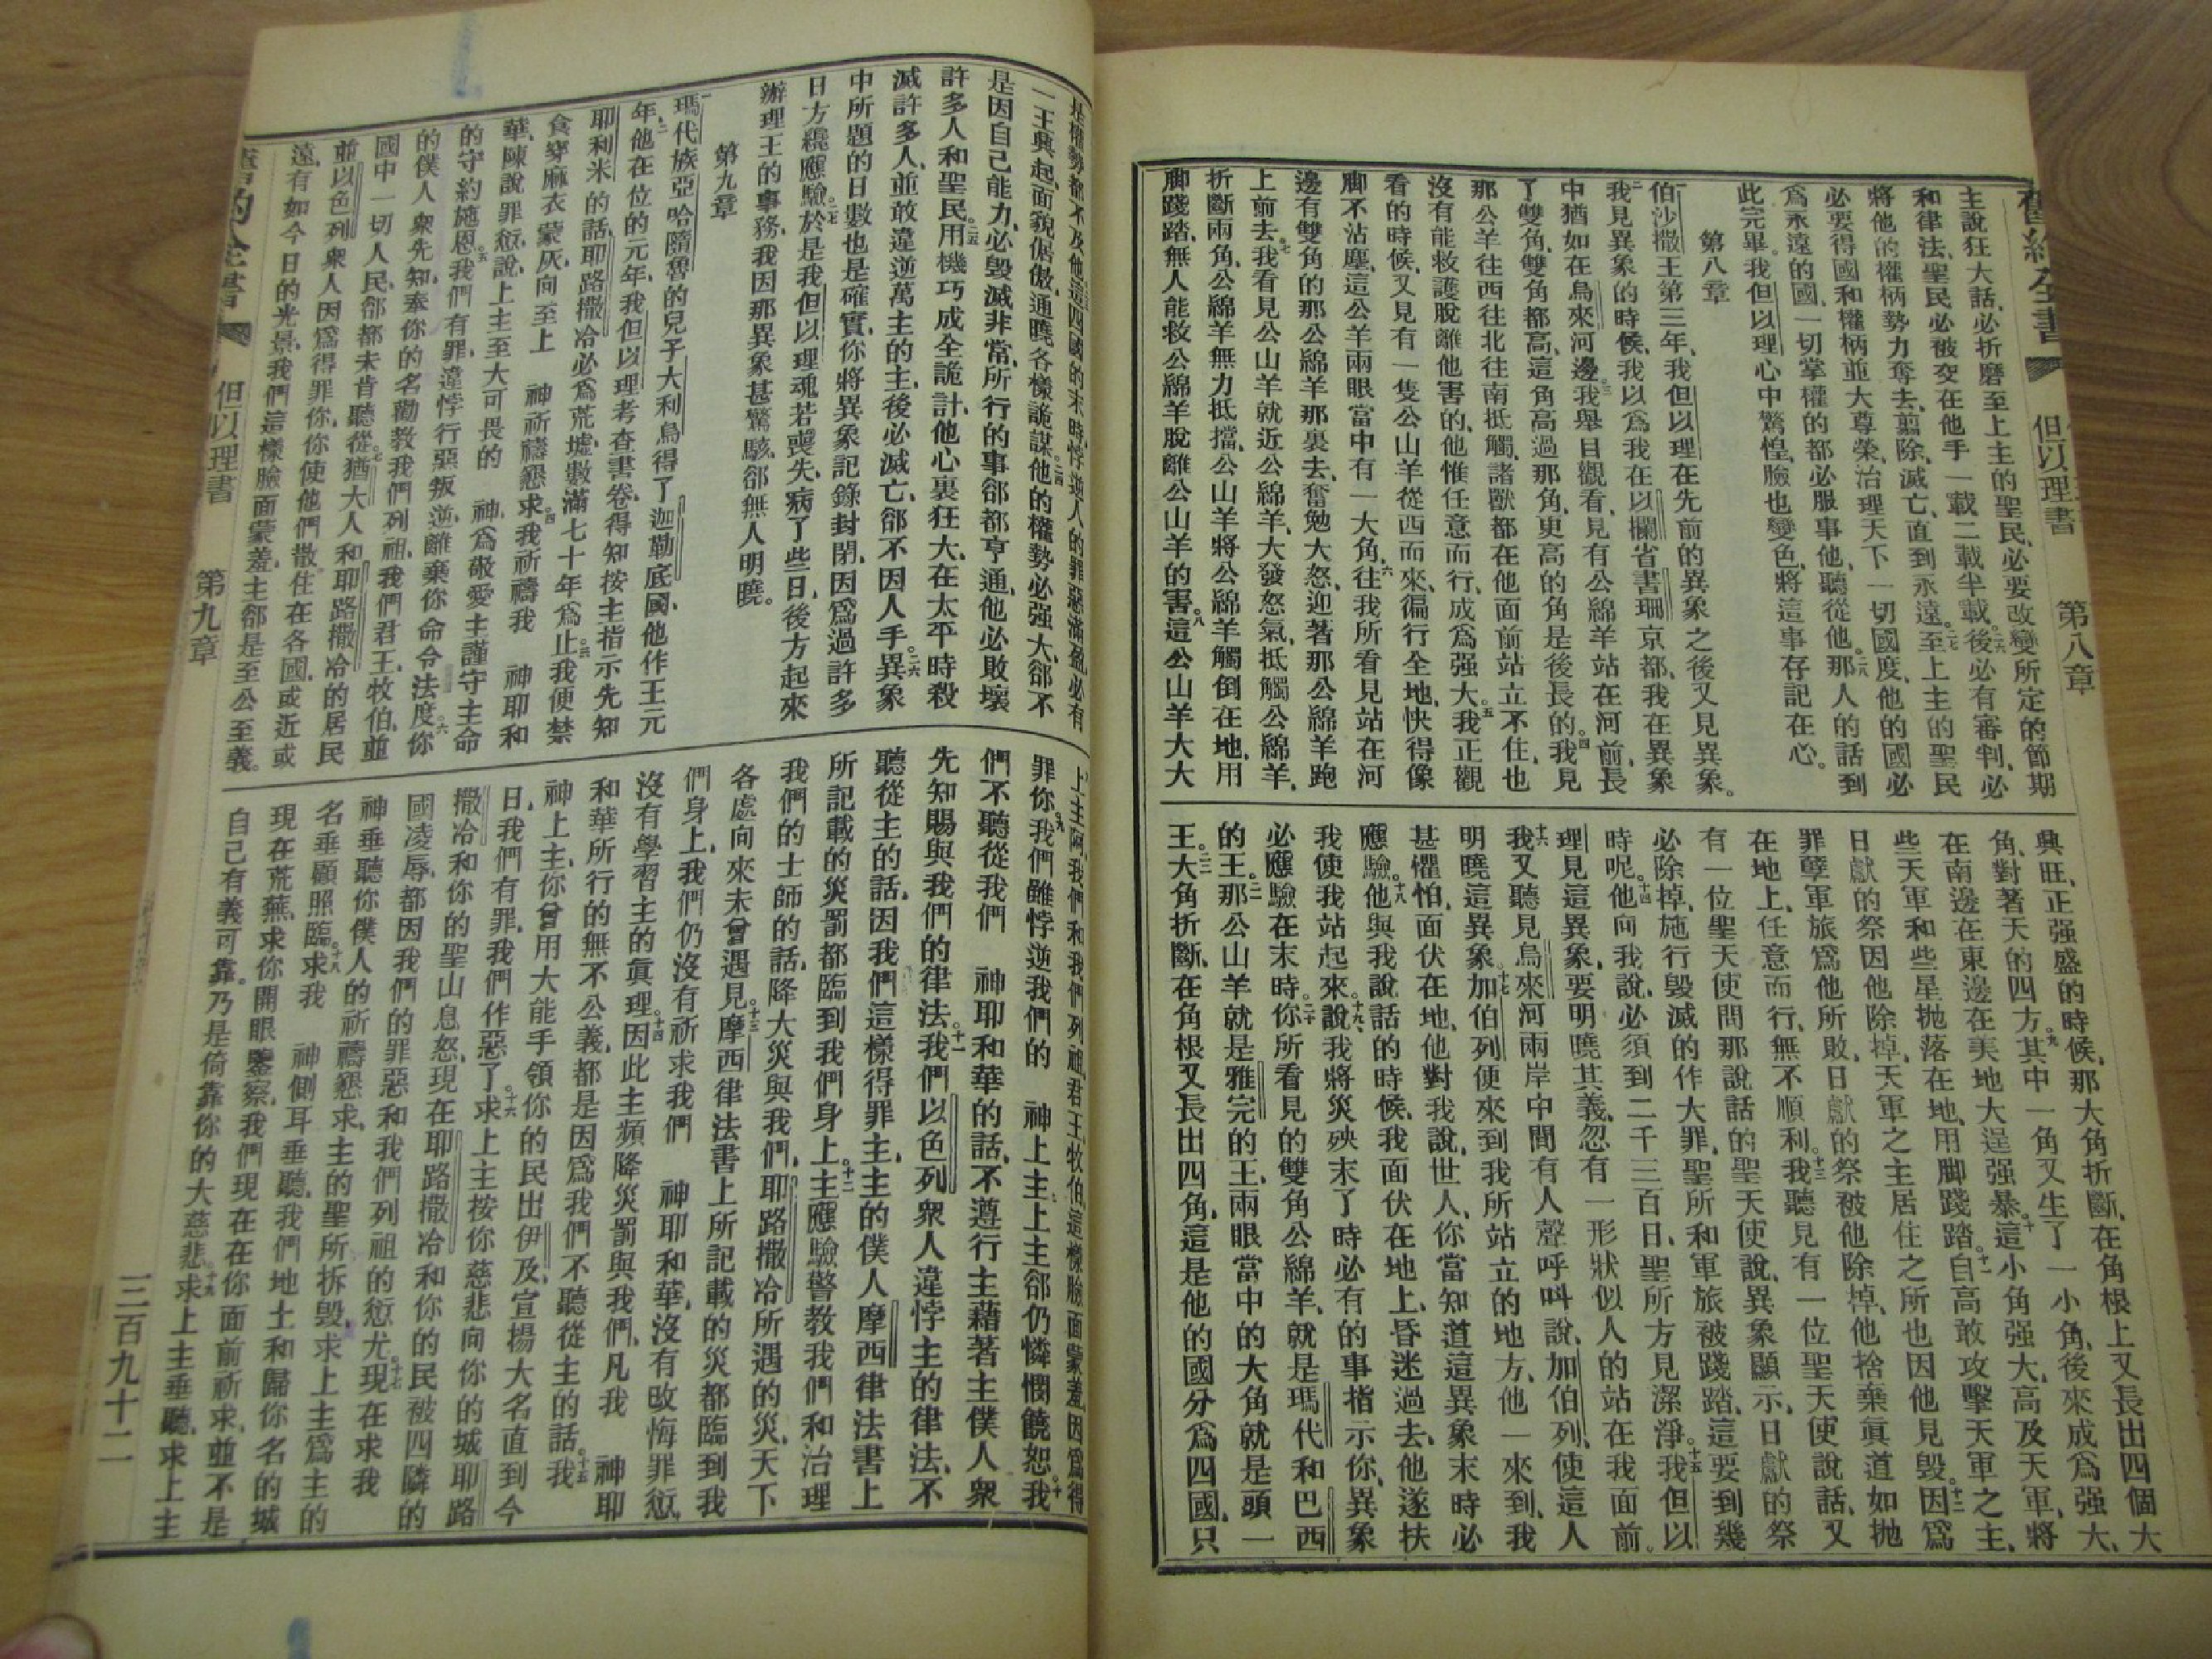 但以理書　第八章
主說狂大話、必折磨至上主的聖民、必要改變所定的節期
和律法、聖民必被交在他手一載、二載半載。二六後必有審判、必
將他的權柄勢力奪去、剪除、滅亡、直到永遠。二七至上主的聖民
必要得國和權柄並大尊榮、治理天下一切國度、他的國必
爲永遠的國、一切掌權的都必服事他、聽從他。二八那人的話到
此完畢。我但以理心中驚惶、臉也變色、將這事存記在心。
第八章
一伯沙撒王第三年、我但以理在先前的異象之後又見異象。
二我見異象的時候、我以爲我在以攔省書珊京都、我在異象
中猶如在烏來河邊。三我舉目觀看、見有公綿羊站在河前、長
了雙角、雙角都高、這角高過那角、更高的角是後長的。四我見
那公羊往西往北往南抵觸、諸獸都在他面前站立不住、也
沒有能救護脫離他害的、他惟任意而行、成爲强大。五我正觀
看的時候、又見有一隻公山羊從西而來、徧行全地、快得像
脚不沾塵、這公羊兩眼當中有一大角。六往我所看見站在河
邊有雙角的那公綿羊那裏去、奮勉大怒、迎著那公綿羊跑
上前去。七我看見公山羊就近公綿羊、大發怒氣、抵觸公綿羊、
折斷兩角、公綿羊無力抵擋、公山羊將公綿羊觸倒在地、用
脚踐踏、無人能救公綿羊脫離公山羊的害。八這公山羊大大
興旺、正强盛的時候、那大角折斷、在角根上又長出四個大
角、對著天的四方。九其中一角又生了一小角、後來成爲强大、
在南邊在東邊在美地大逞强暴。十這小角强大、高及天軍、將
些天軍和些星拋落在地、用脚踐踏。十一自高敢攻擊天軍之主、
日獻的祭因他除掉、天軍之主居住之所也因他見毀。十二因爲
罪孽軍旅爲他所敗、日獻的祭被他除掉、他捨棄眞道如拋
在地上、任意而行、無不順利。十三我聽見有一位聖天使說話、又
有一位聖天使問那說話的聖天使說、異象顯示、日獻的祭
必除掉、施行毀滅的作大罪、聖所和軍旅被踐踏、這要到幾
時呢。十四他向我說、必須到二千三百日、聖所方見潔淨。十五我但以
理見這異象、要明曉其義、忽有一形狀似人的站在我面前。
十六我又聽見烏來河兩岸中間有人聲呼呌說、加伯列、使這人
明曉這異象。十七加伯列便來到我所站立的地方、他一來到、我
甚懼怕、面伏在地、他對我說、世人、你當知道這異象末時必
應驗。十八他與我說話的時候、我面伏在地上、昏迷過去、他遂扶
我使我站起來。十九說、我將災殃末了時必有的事指示你、異象
必應驗在末時。二十你所看見的雙角公綿羊、就是瑪代和巴西
的王。二一那公山羊就是雅完的王、兩眼當中的大角就是頭一
王。二二大角折斷、在角根又長出四角、這是他的國分爲四國、只
是權勢都不及他。這四國的末時悖逆人的罪惡滿盈、必有
一王興起、面貌倨傲、通曉各樣詭謀。二四他的權勢必强大、郤不
是因自己能力、必毁滅非常、所行的事郤都亨通、他必敗壞
許多人和聖民。二五用機巧成全詭計、他心裏狂大、在太平時殺
滅許多人、並敢違逆萬主的主、後必滅亡、郤不因人手。二六異象
中所題的日數也是確實、你將異象記錄封閉、因爲過許多
日方纔應驗。二七於是我但以理魂若喪失、病了些日、後方起來
辦理王的事務、我因那異象甚驚駭、郤無人明曉。
第九章
一瑪代族亞哈隨魯的兒子大利烏得了迦勒底國、他作王元
年。二他在位的元年、我但以理考查書卷、得知按主指示先知
耶利米的話、耶路撒冷必爲荒墟、數滿七十年爲止。三我便禁
食穿麻衣蒙灰、向至上　神祈禱懇求。四我祈禱我　神耶和
華、陳說罪愆、說、上主至大可畏的　神、爲敬愛主謹守主命
的守約施恩。五我們有罪、違悖行惡叛逆、離棄你命令法度。六你
的僕人衆先知、奉你的名勸教我們列祖、我們君王、牧伯、並
國中一切人民、郤都未肯聽從。七猶大人和耶路撒冷的居民
並以色列衆人、因爲得罪你、你使他們散住在各國、或近或
遠、有如今日的光景、我們這樣臉面蒙羞、主郤是至公至義。
上主阿、我們和我們列祖、君王、牧伯、這樣臉面蒙羞、因爲得
罪你。九我們雖悖逆我們的　神上主、上主郤仍憐憫饒恕。十我
們不聽從我們　神耶和華的話、不遵行主藉著主僕人衆
先知賜與我們的律法。十一我們以色列衆人違悖主的律法、不
聽從主的話、因我們這樣得罪主、主的僕人摩西律法書上
所記載的災罰都臨到我們身上。十二主應驗警教我們和治理
我們的士師的話、降大災與我們、耶路撒冷所遇的災、天下
各處向來未曾遇見。十三摩西律法書上所記載的災都臨到我
們身上、我們仍沒有祈求我們　神耶和華、沒有改悔罪愆、
沒有學習主的眞理。十四因此主頻降災罰與我們、凡我　神耶
和華所行的無不公義、都是因爲我們不聽從主的話。十五我
神上主、你曾用大能手領你的民出伊及、宣揚大名直到今
日、我們有罪、我們作惡了。十六求上主按你慈悲向你的城耶路
撒冷和你的聖山息怒、現在耶路撒冷和你的民被四隣的
國凌辱、都因我們的罪惡和我們列祖的愆尤。十七現在求我
神垂聽你僕人的祈禱懇求、主的聖所拆毀、求上主爲主的
名垂顧照臨。十八求我　神側耳垂聽、我們地土和歸你名的城
現在荒蕪、求你開眼鑒察、我們現在在你面前祈求、並不是
自己有義可靠、乃是倚靠你的大慈悲。十九求上主垂聽、求上主
但以理書　第九章　三百九十二